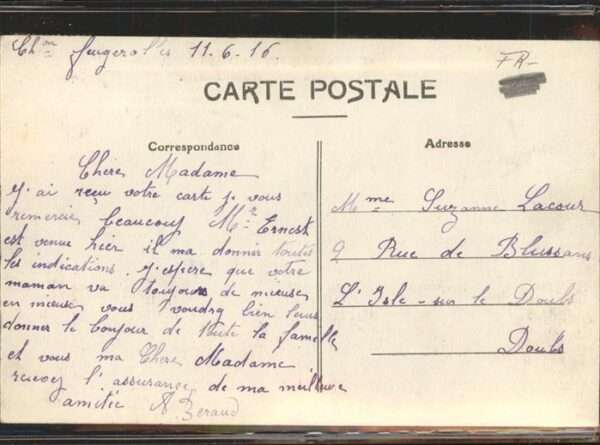 Chon feugerolles 11.6.16.
FR-
CARTE POSTALE
Correspondance
Adresse
Chère Madame
J'ai reçu votre carte je vous
remercie beaucoup Mr Ernest
est venue hier il ma donner toutes
les indications. J'espère que votre
maman va toujours de mieuse
en mieuse vous voudrq bien leurs
donner le bonjour de toute la famelle
et vous ma Chère Madame
recevez l'assurance de ma meilleure
amitée A. Beraud
Mme Suzanne Lacour
9 Rue de Blussans
L'Isle-sur le Doubs
Doubs